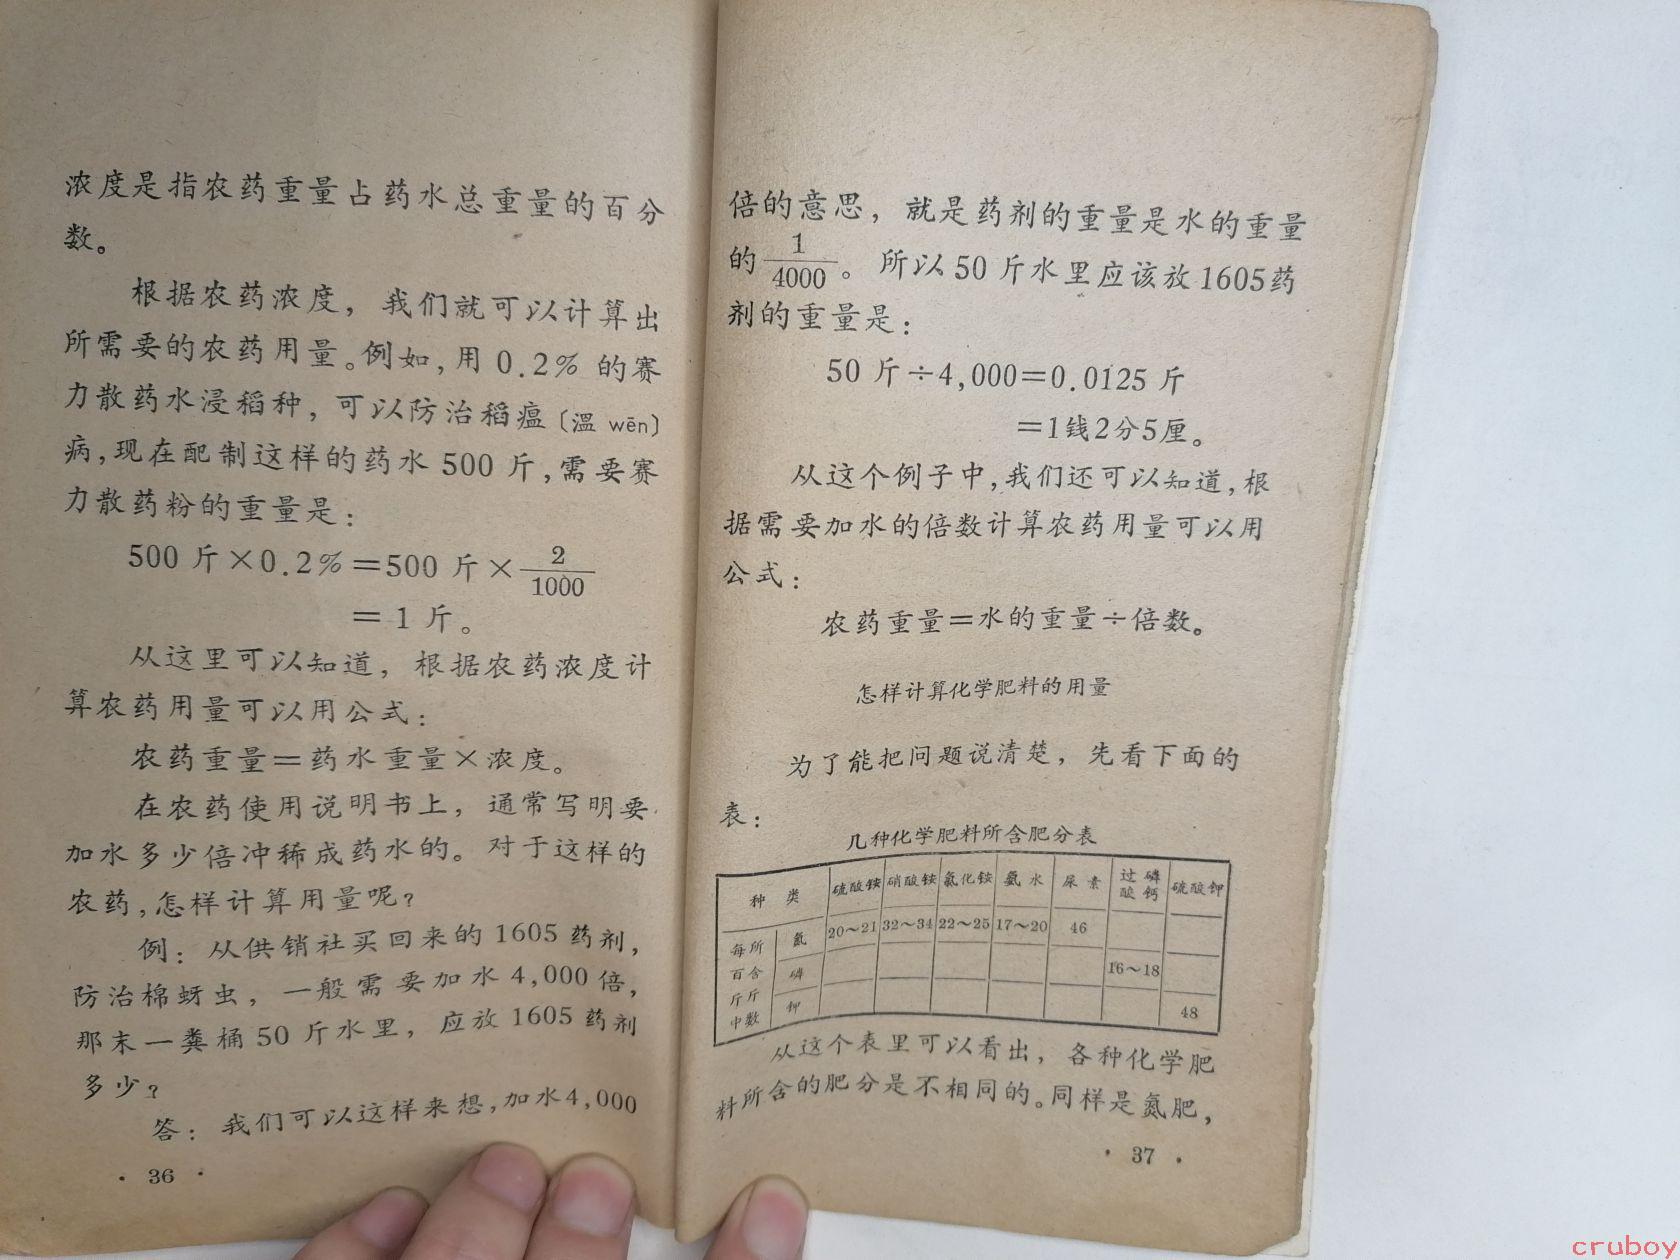 浓度是指农药重量占药水总重量的百分
数。
根据农药浓度，我们就可以计算出
所需要的农药用量。例如,用0.2%的赛
力散药水浸稻种，可以防治稻瘟〔温 wēn〕
病,现在配制这样的药水500斤,需要赛
力散药粉的重量是：
500斤×0.2%＝500斤×2/1000
＝1斤。
从这里可以知道，根据农药浓度计
算农药用量可以用公式：
农药重量＝药水重量×浓度。
在农药使用说明书上，通常写明要
加水多少倍冲稀成药水的。对于这样的
农药,怎样计算用量呢？
例：从供销社买回来的1605药剂，
防治棉蚜虫，一般需要加水4,000倍，
那末一粪桶50斤水里，应放1605药剂
多少？
答：我们可以这样来想,加水4,000
·36·
倍的意思，就是药剂的重量是水的重量
的1/4000。所以50斤水里应该放1605药
剂的重量是：
50斤÷4,000＝0.0125斤
＝1钱2分5厘。
从这个例子中,我们还可以知道,根
据需要加水的倍数计算农药用量可以用
公式：
农药重量＝水的重量÷倍数。
怎样计算化学肥料的用量
为了能把问题说清楚，先看下面的
表：
几种化学肥料所含肥分表
种类 硫酸铵 硝酸铵 氯化铵 氨水 尿素 过磷酸钙 硫酸钾
每百斤中所含斤数
氮 20～21 32～34 22～25 17～20 46
磷 16～18
钾 48
从这个表里可以看出，各种化学肥
料所含的肥分是不相同的。同样是氮肥，
·37·
cruboy